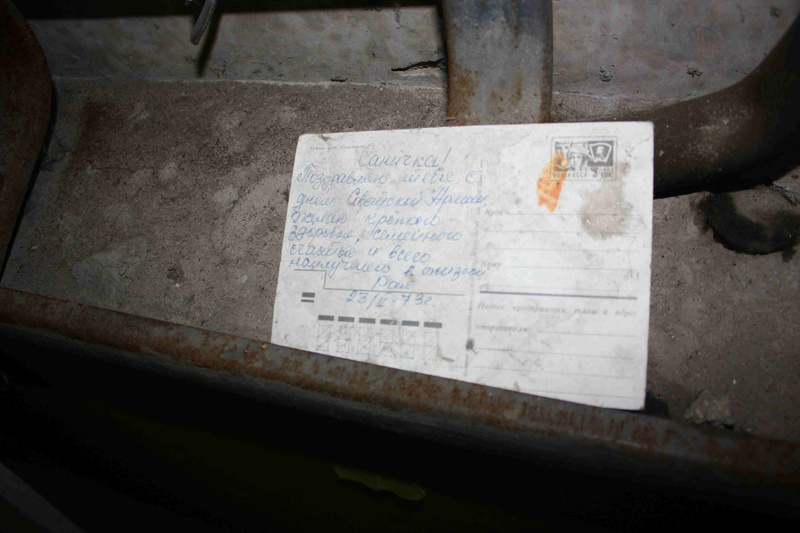 Саничка!
Поздравляю тебя с
днём Советской Армии,
желаю крепкого
здоровья, семейного
счастья и всего
наилучшего в жизни
Рая
23/II-73г.
Куда
Кому
Индекс предприятия связи и адрес
отправителя